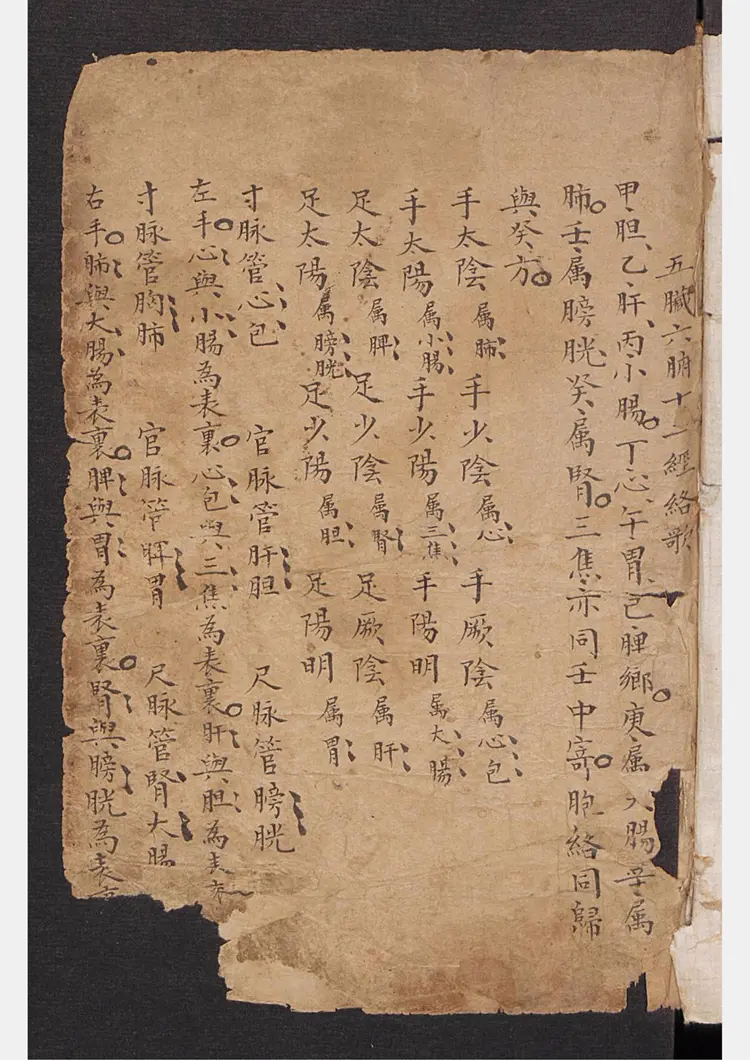 五臟六腑十二經絡歌
甲胆、乙肝、丙小腸。丁心、午胃、己脾鄉。庚属大腸辛属
肺。壬属膀胱癸属腎。三焦亦同壬中寄。胞絡同歸
與癸方。
手太陰属肺 手少陰属心 手厥陰属心包
手太陽属小腸 手少陽属三焦 手陽明属大腸
足太陰属脾 足少陰属腎 足厥陰属肝
足太陽属膀胱 足少陽属胆 足陽明属胃
寸脉管心包 官脉管肝胆 尺脉管膀胱
左手。心與小腸為表裏。心包與三焦為表裏。肝與胆為表
寸脉管胸肺 官脉管脾胃 尺脉管腎大腸
右手。肺與大腸為表裏。脾與胃為表裏。腎與膀胱為表